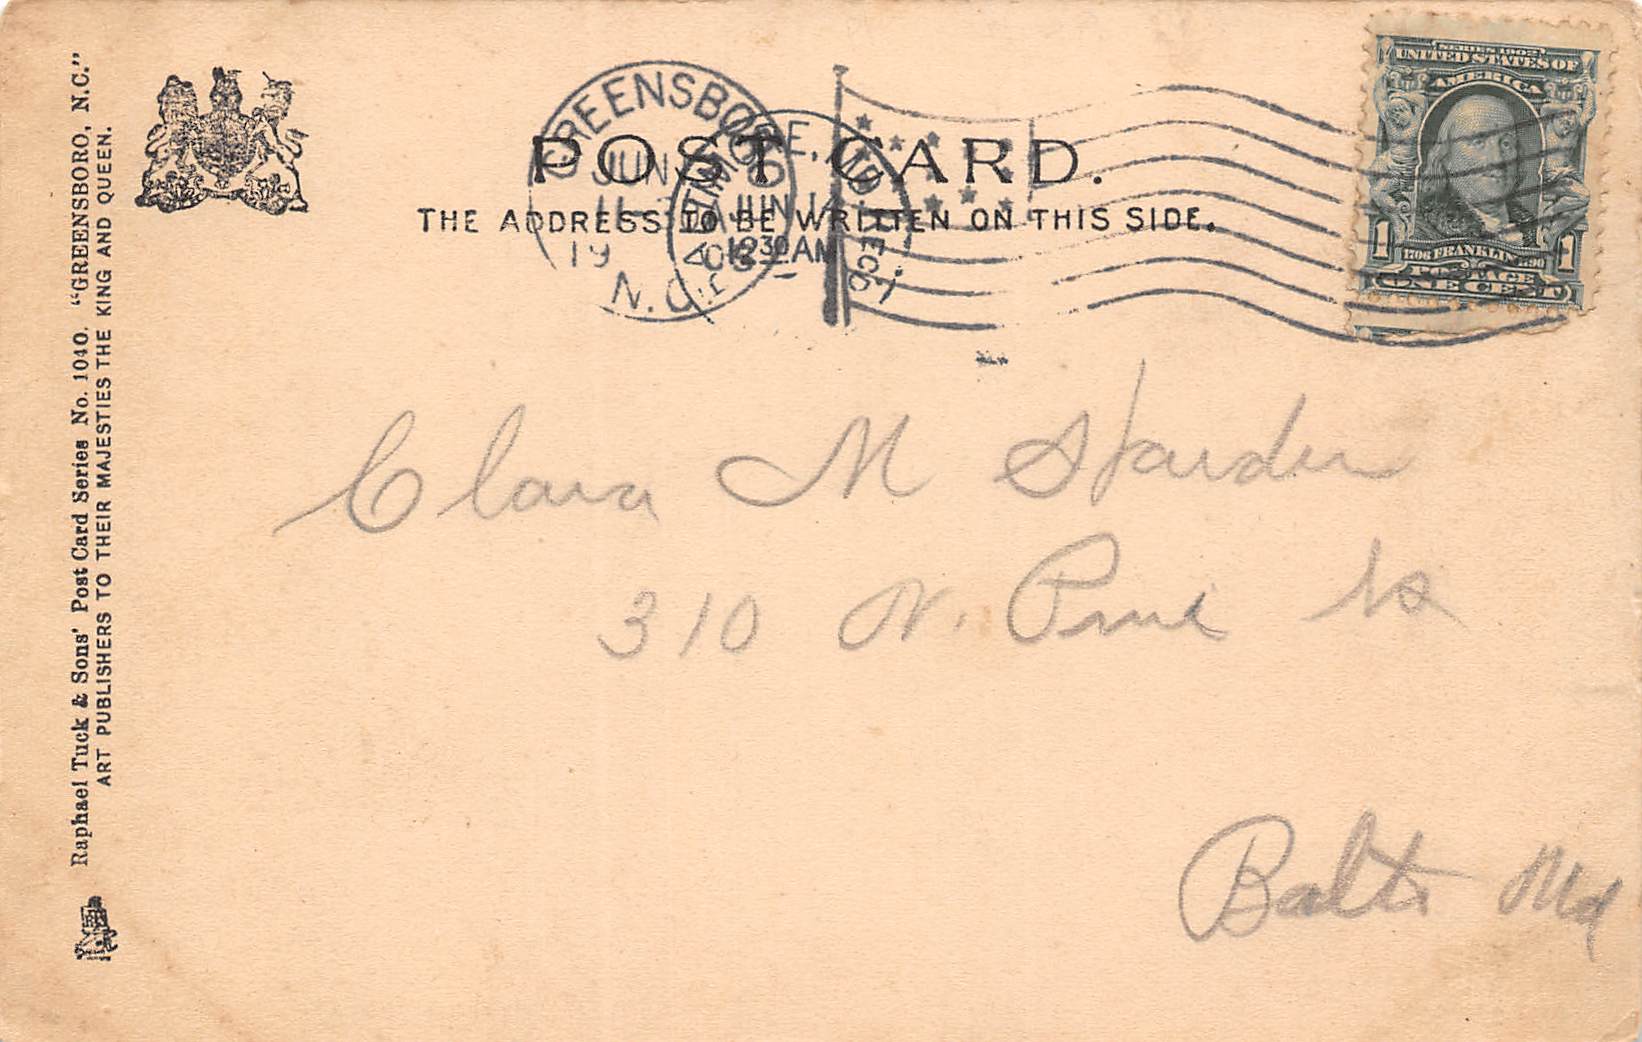 POST CARD.
THE ADDRESS TO BE WRITTEN ON THIS SIDE.
GREENSBORO
JUN
11
19
N.C.
JUN 14
12 30 AM
SERIES 1902
UNITED STATES OF
AMERICA
1 1
1706 FRANKLIN 1790
POSTAGE
ONE CENT
Raphael Tuck & Sons' Post Card Series No. 1040. "GREENSBORO, N.C."
ART PUBLISHERS TO THEIR MAJESTIES THE KING AND QUEEN.
Clara M Harden
310 N. Pine St
Balto Md